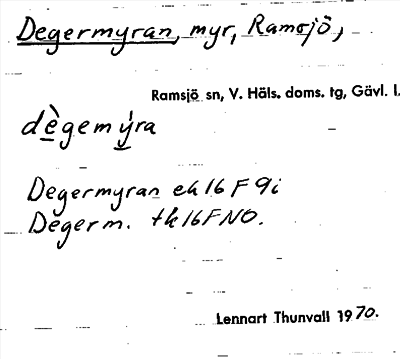 Degermyran, myr, Ramsjö,
Ramsjö sn, V. Häls. doms. tg, Gävl. l.
dègemýra
Degermyran ek 16 F 9i
Degerm. tk 16F NO.
Lennart Thunvall 1970.